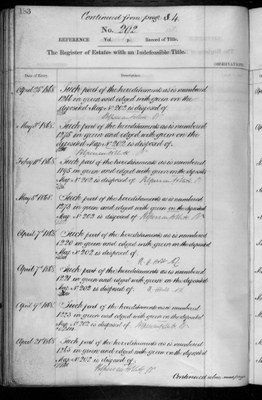 183
Continued from page 84.
No. 202
REFERENCE to Record of Title.
The Register of Estates with an Indefeasible Title.
Date of Entry.
Description.
OBSERVATIONS
April 25th 1865 Such part of the hereditaments as is numbered
in green and edged with green on the
deposited Map No 202 is disposed of.
May 8th 1865 Such part of the hereditaments as is numbered
1275 in green and edged with green on the
deposited Map No 202 is disposed of.
Such part of the hereditaments as is numbered
1195 in green and edged with green on the deposited
Map No 202 is disposed of
May 3rd 1865 Such part of the hereditaments as is numbered
1273 in green and edged with green on the deposited
Map No 202 is disposed of
April 7th 1865 Such part of the hereditaments as is numbered
1220 in green and edged with green on the deposited
Map No 202 is disposed of.
April 7th 1865 Such part of the hereditaments as is numbered
1221 in green and edged with green on the deposited
Map No 202 is disposed of.
April 9th 1865 Such part of the hereditaments as is numbered
1223 in green and edged with green on the deposited
Map No 202 is disposed of
April 21st 1865 Such part of the hereditaments as is numbered
1265 in green and edged with green on the deposited
Map No 202 is disposed of.
Continued